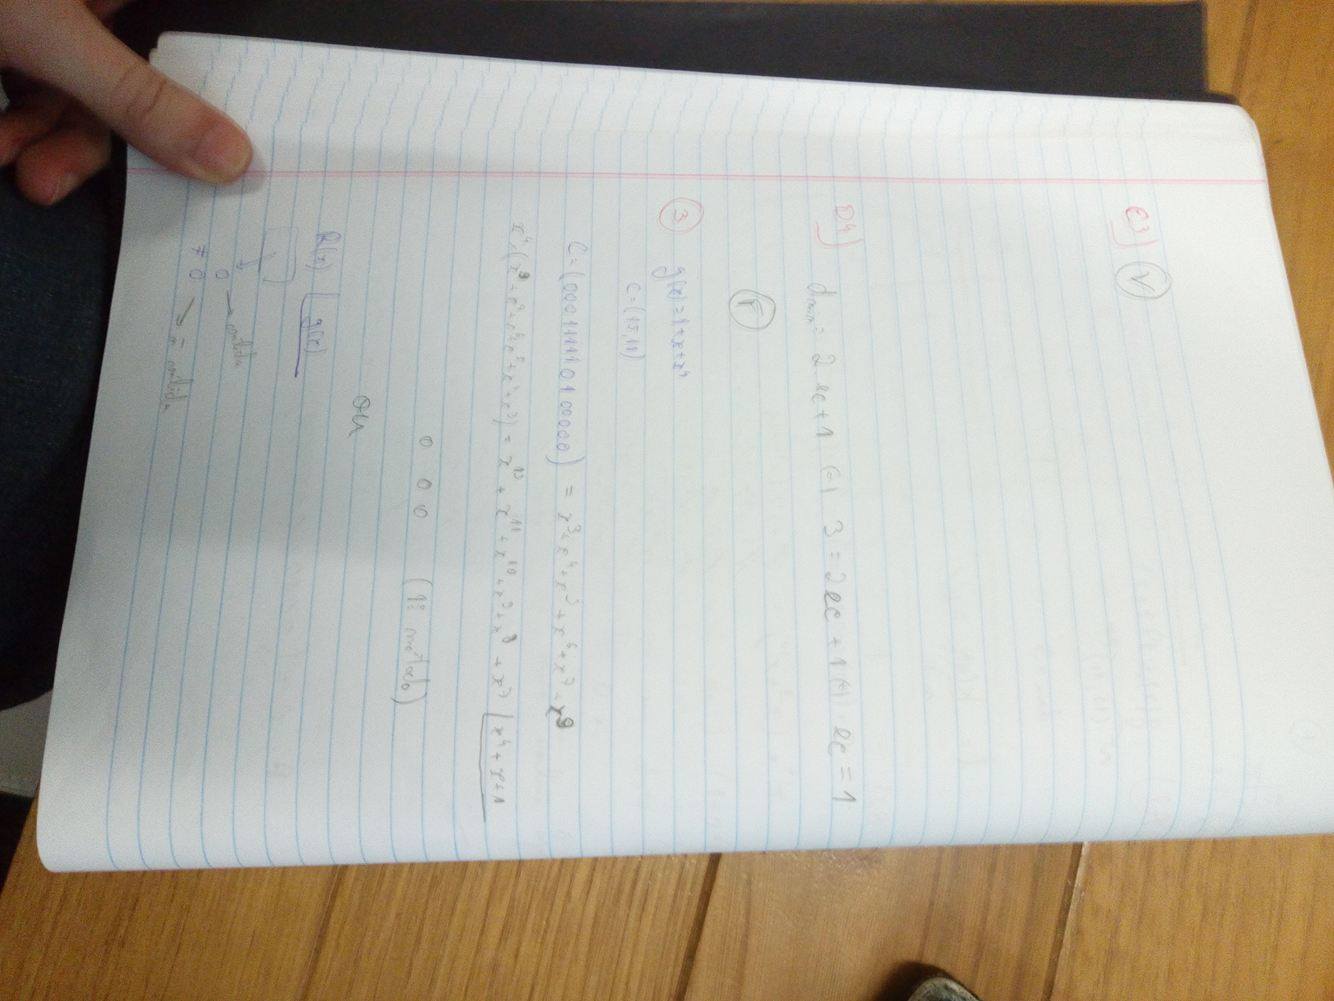 C3) V
D4) dmin = 2ec+1 (=) 3 = 2ec + 1 (=) ec = 1
F
3 g(x) = 1+x+x⁴
C = (15,11)
C = (000111110100000) = x³+x⁴+x⁵+x⁶+x⁷+x⁹
x⁴·(x⁹+x⁷+x⁶+x⁵+x⁴+x³) = x¹³ + x¹¹ + x¹⁰ + x⁹ + x⁸ + x⁷ | x⁴+x+1
0 0 0 (1º método)
ou
R(x) | g(x)
0 →
≠ 0 →